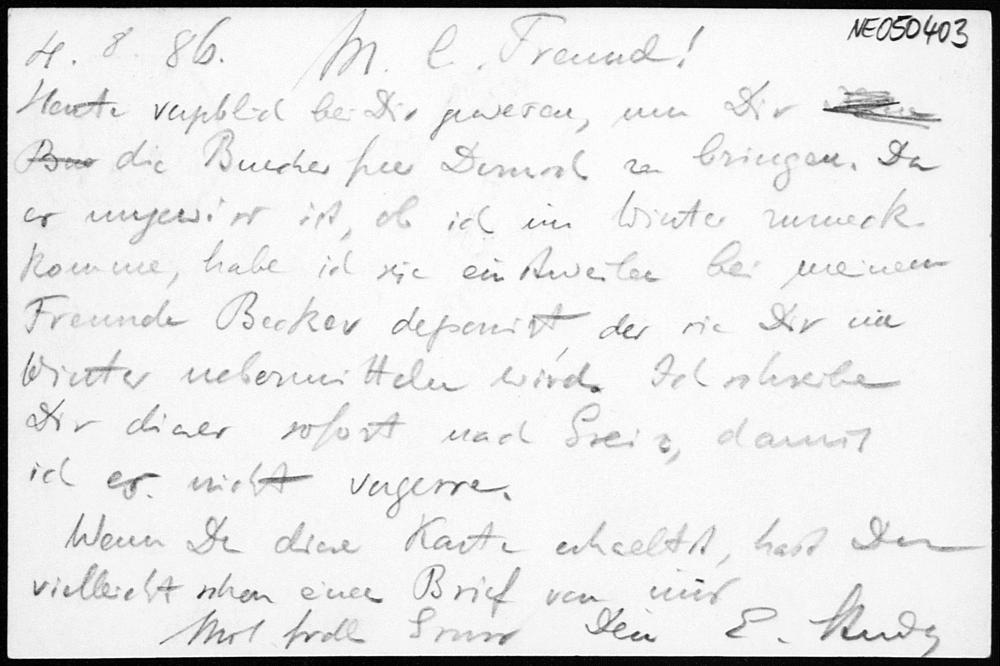 NEO50403
4. 8. 86. M. l. Freund!
Heute vergeblich bei Dir gewesen, um Dir
die Buecher fuer Dornach zu bringen. Da
es ungewiss ist, ob ich im Winter zurueck-
komme, habe ich sie einstweilen bei meinem
Freunde Becker deponirt, der sie Dir im
Winter uebermitteln wird. Ich schreibe
Dir dieses sofort nach Greiz, damit
ich es nicht vergesse.
Wenn Du diese Karte erhaeltst, hast Du
vielleicht schon einen Brief von mir
Mit Gruss Dein E. Study